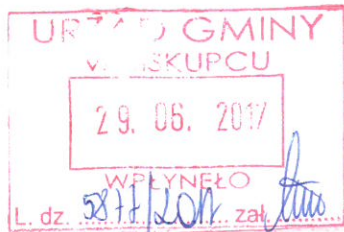 URZĄD GMINY
W BISKUPCU
29. 06. 2017
WPŁYNĘŁO
L. dz. 5877/2017 zał.